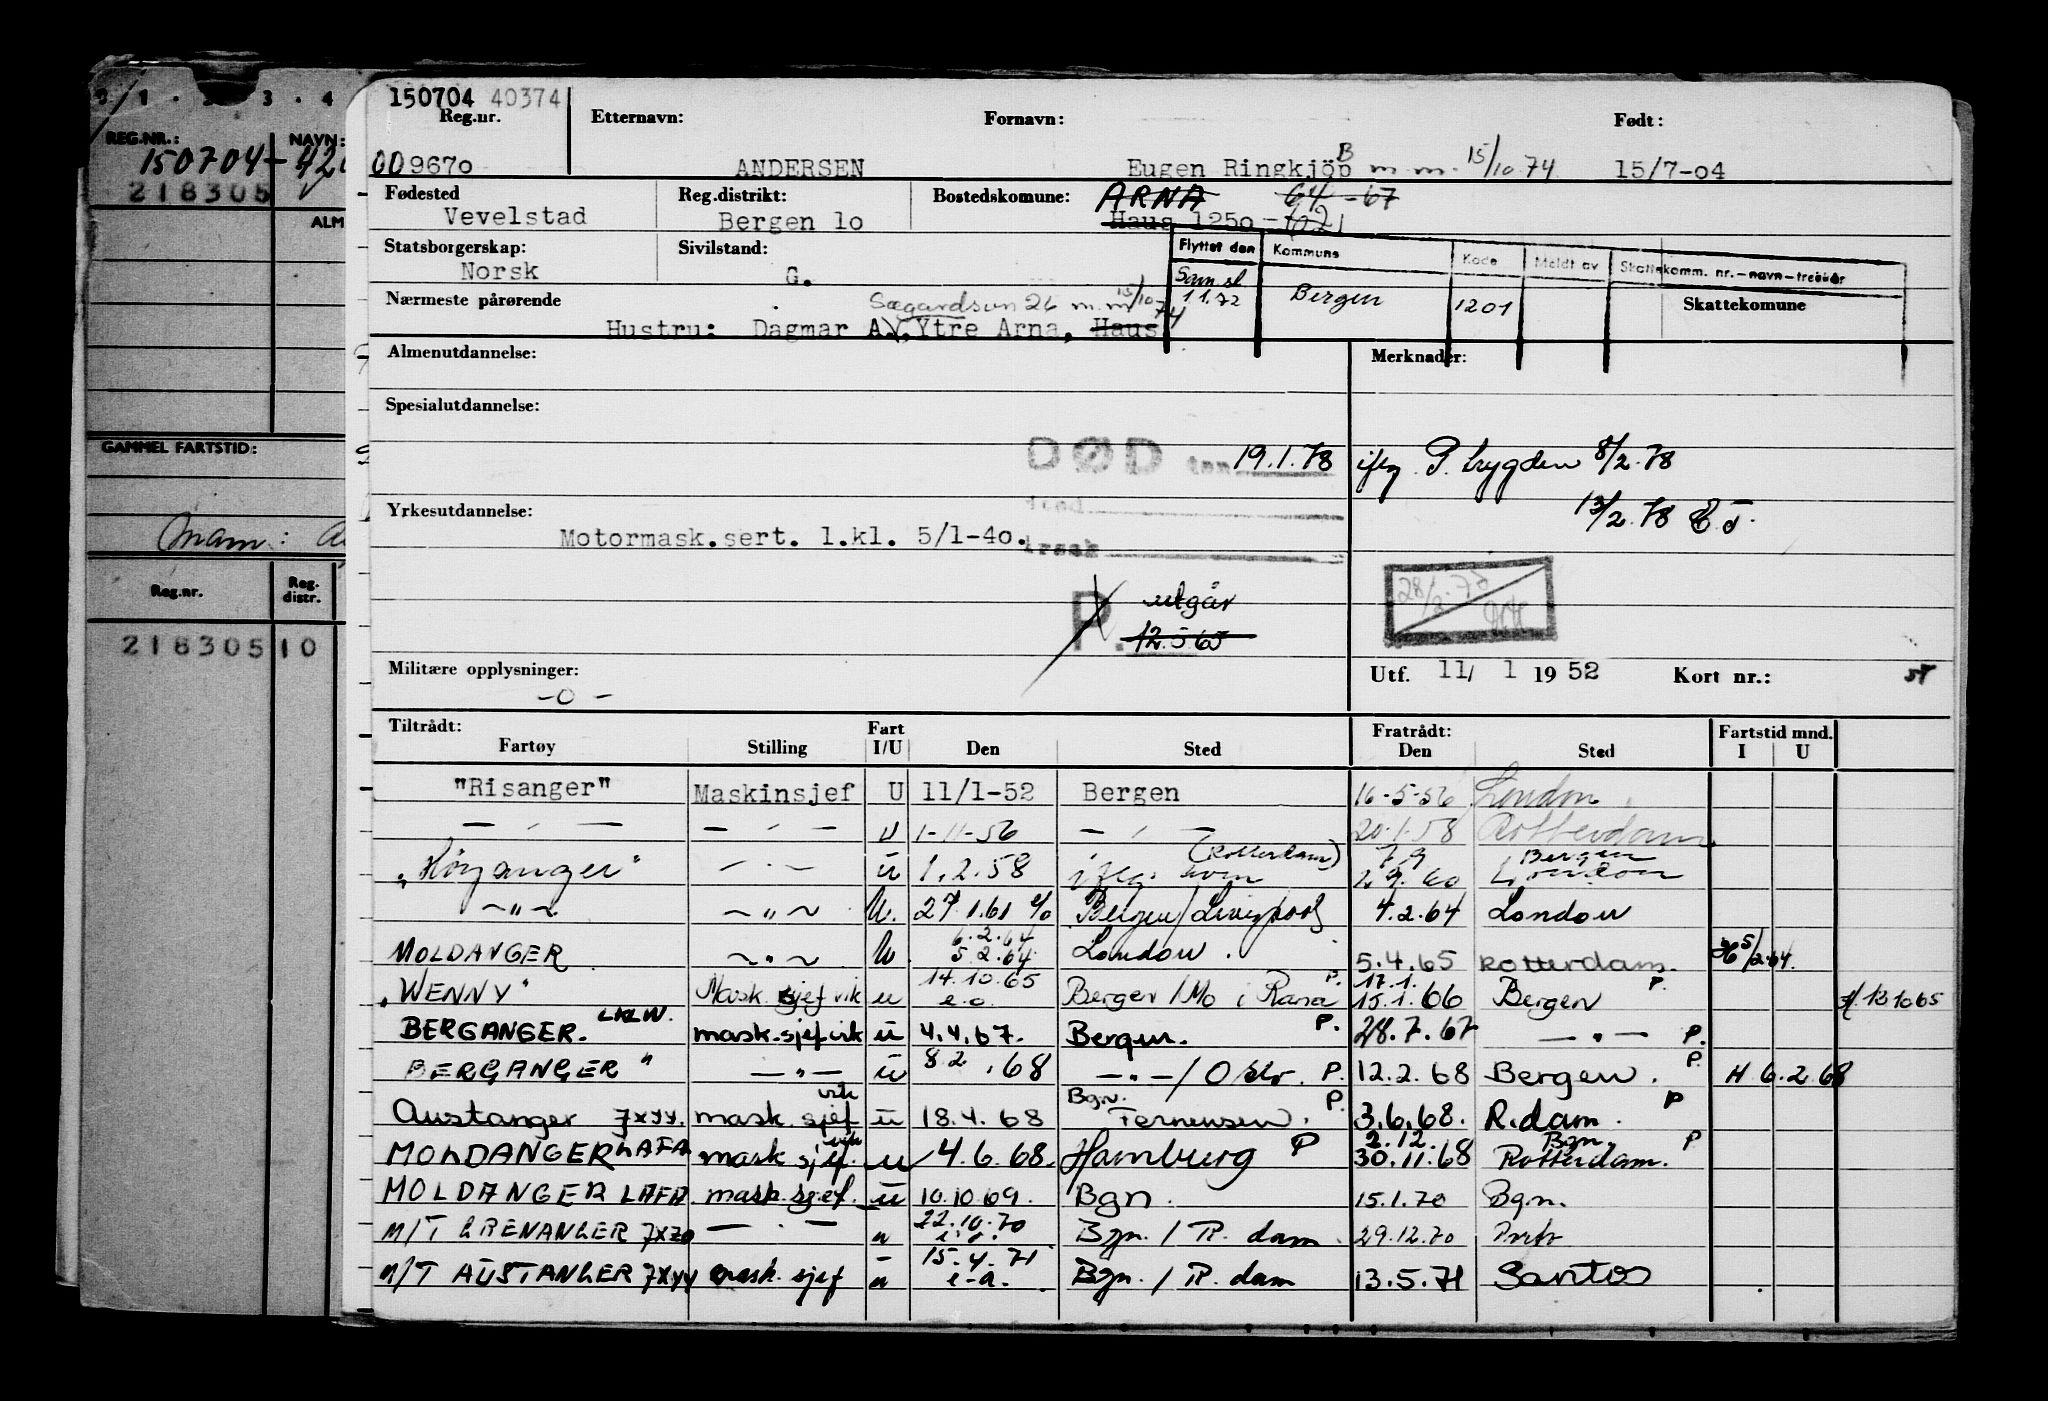 1 · 2 3 · 4
REG.NR.: NAVN:
150704-42
218305
ALM
GAMMEL FARTSTID:
Mam:
Reg.nr. Reg. distr.
218305 10
150704 40374
Reg.nr. Etternavn: Fornavn: Født:
009670 ANDERSEN Eugen Ringkjöb B m.m. 15/10 74 15/7-04
Fødested Reg.distrikt: Bostedskommune: ARNA 64-67
Vevelstad Bergen 10 Haus 1250-621
Statsborgerskap: Sivilstand: Flyttet den Kommune Kode Meldt av Skattekomm. nr.-navn-trekkår
Norsk G. Saml 1 1.72 Bergen 1201 Skattekommune
Nærmeste pårørende Sægardsvn 26 m.m 15/10 74
Hustru: Dagmar A., Ytre Arna, Haus
Almenutdannelse: Merknader:
Spesialutdannelse:
DØD den 19.1.78 iføg. P. trygden 8/2.78
sted
13/2.78 E.J.
Yrkesutdannelse:
Motormask.sert. 1.kl. 5/1-40.
årsak
P. utgår
12.5 65
28/2.75
Militære opplysninger: Utf. 11/ 1 1952 Kort nr.:
-0-
Tiltrådt: Fart Fratrådt: Fartstid mnd.
Fartøy Stilling I/U Den Sted Den Sted I U
"Risanger" Maskinsjef U 11/1-52 Bergen 16-5-56 London
— " — — " — U 1-11-56 — " — 20.1.58 Rotterdam
"Høyanger" — " — u 1.2.58 (Rotterdam) 7.9 Bergen
2.9.60 London
— " — — " — U. 27.1.61 Bergen/Liverpool 4.2.64 London
6.2.64
MOLDANGER — " — U 5.2.64 London. 5.4.65 Rotterdam. H 5/2.64.
"WENNY" Mask.sjef vik u 14.10.65 e.o. Bergen/Mo i Rana P. 17.1. 15.1.66 Bergen P. H. 13 10 65
BERGANGER. LKLW. mask.sjef vik u 4.4.67. Bergen. P. 28.7.67 — " — P.
BERGANGER " — " — u 8.2.68 — " — / Oslo. P. 12.2.68 Bergen. P. H 6.2.68
Austanger JXYY. mask. sjef vik u 18.4.68 Bgn. Terneusen. P. 3.6.68. R.dam. P
MOLDANGER LAFA mask sjef. vik u 4.6.68. Hamburg P 2.12. 30.11.68 Bgn. Rotterdam. P
MOLDANGER LAFA mask.sjef. u 10.10.69. Bgn. 15.1.70 Bgn.
M/T GRENANGER JXZO — " — u 22.10.70 e.o. Bgn. / R. dam 29.12.70
M/T AUSTANGER JXYY mask. sjef u 15.4.71 e.a. Bgn. / R. dam 13.5.71 Santos